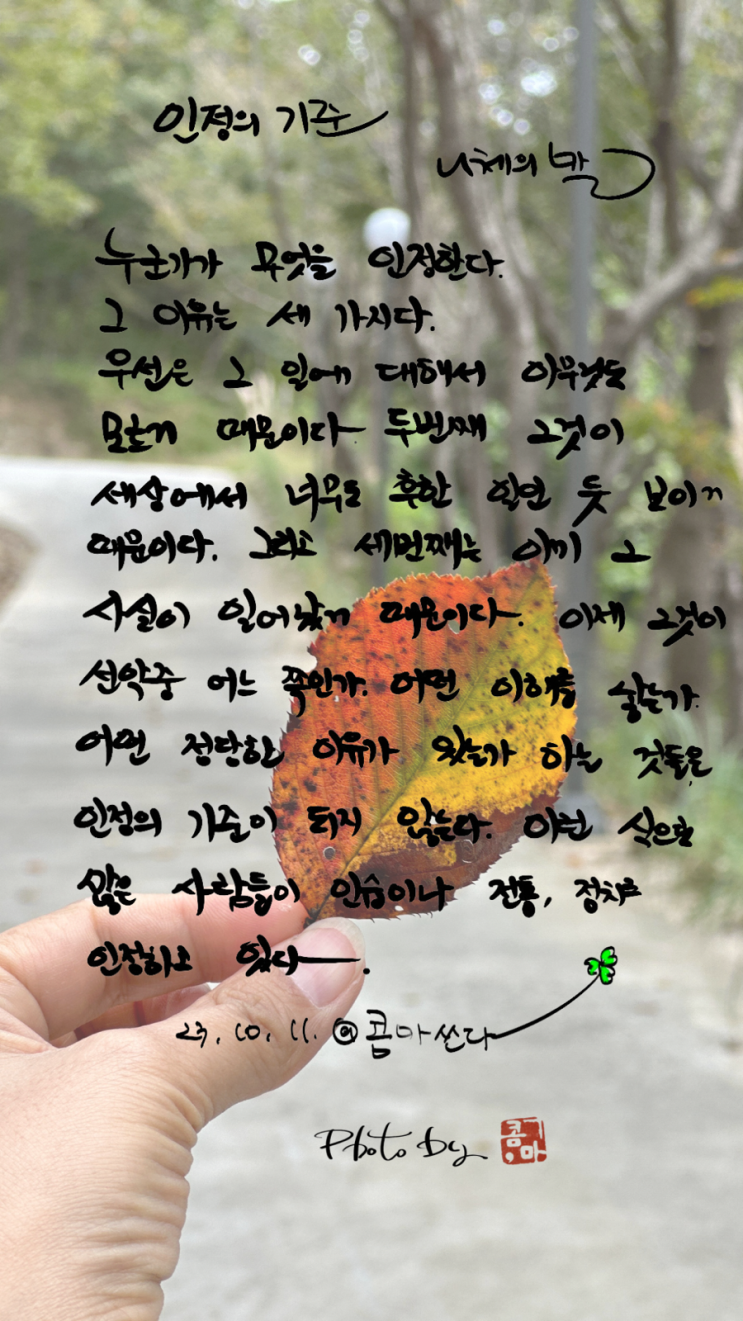 인정의 기준
니체의 말
누군가가 무엇을 인정한다.
그 이유는 세 가지다.
우선은 그 일에 대해서 아무것도
모르기 때문이다. 두번째 그것이
세상에서 너무도 흔한 일인 듯 보이기
때문이다. 그리고 세번째는 이미 그
사실이 일어났기 때문이다. 이제 그것이
선악중 어느 쪽인가. 어떤 이해를 낳는가.
어떤 정당한 이유가 있는가 하는 것들은
인정의 기준이 되지 않는다. 이런 식으로
많은 사람들이 인습이나 전통, 정치를
인정하고 있다.
23. 10. 11. @콤마쓴다
Photo by 콤마